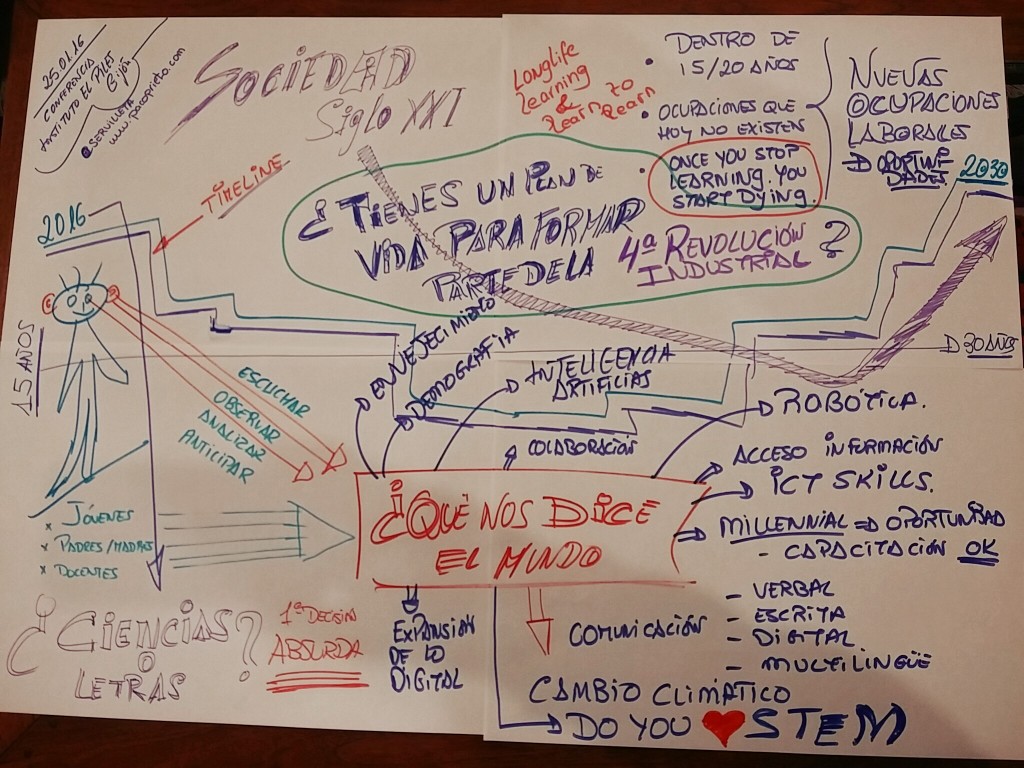 25.01.16
CONFERENCIA
INSTITUTO EL PILES
Gijón
@SERVILLETA
www.pacoprieto.com
SOCIEDAD
Siglo XXI
Longlife
Learning
&
Learn to
Learn
• DENTRO DE
15/20 AÑOS
• OCUPACIONES QUE
HOY NO EXISTEN
• ONCE YOU STOP
LEARNING, YOU
START DYING.
NUEVAS
OCUPACIONES
LABORALES
OPORTUNI
DADES
2030
2016
TIMELINE
¿TIENES UN PLAN DE
VIDA PARA FORMAR
PARTE DE LA 4ª REVOLUCIÓN
INDUSTRIAL?
30 AÑOS
15 AÑOS
ESCUCHAR
OBSERVAR
ANALIZAR
ANTICIPAR
ENVEJECIMIENTO
DEMOGRAFIA
INTELIGENCIA
COLABORACIÓN
ROBÓTICA.
ACCESO INFORMACIÓN
ICT SKILLS.
MILLENNIAL ⇒ OPORTUNIDAD
- CAPACITACIÓN OK
¿QUÉ NOS DICE
EL MUNDO
x JÓVENES
x PADRES/MADRES
x DOCENTES
¿CIENCIAS?
O
LETRAS
1ª DECISIÓN
ABSURDA
EXPANSION
DE LO
DIGITAL
COMUNICACIÓN
- VERBAL
- ESCRITA
- DIGITAL
- MULTILINGÜE
CAMBIO CLIMÁTICO
DO YOU ♥ STEM